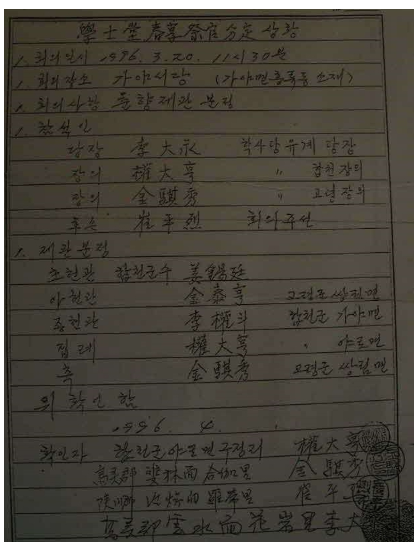 學士堂春享祭官分定 상황
1. 회의일시 1996. 3. 20. 11시 30분
1. 회의장소 가야서당 (가야면 소재)
1. 회의사항 춘향제관 분정
1. 참석인
당장 李大永 학사당유계 당장
장의 權大亨 〃 합천장의
장의 金騏秀 〃 고령장의
후손 崔平烈 회의주선
1. 제관분정
초헌관 합천군수 姜錫廷
아헌관 金泰亨 고령군 쌍림면
종헌관 李權斗 합천군 가야면
집례 權大亨 〃 야로면
축 金騏秀 고령군 쌍림면
위 확인함
1996. 4.
확인자 합천군 야로면 구정리 權大亨
高靈郡 雙林面 合伽里 金騏秀
陜川郡 崔平
高靈郡 雲水面 花岩里 李大